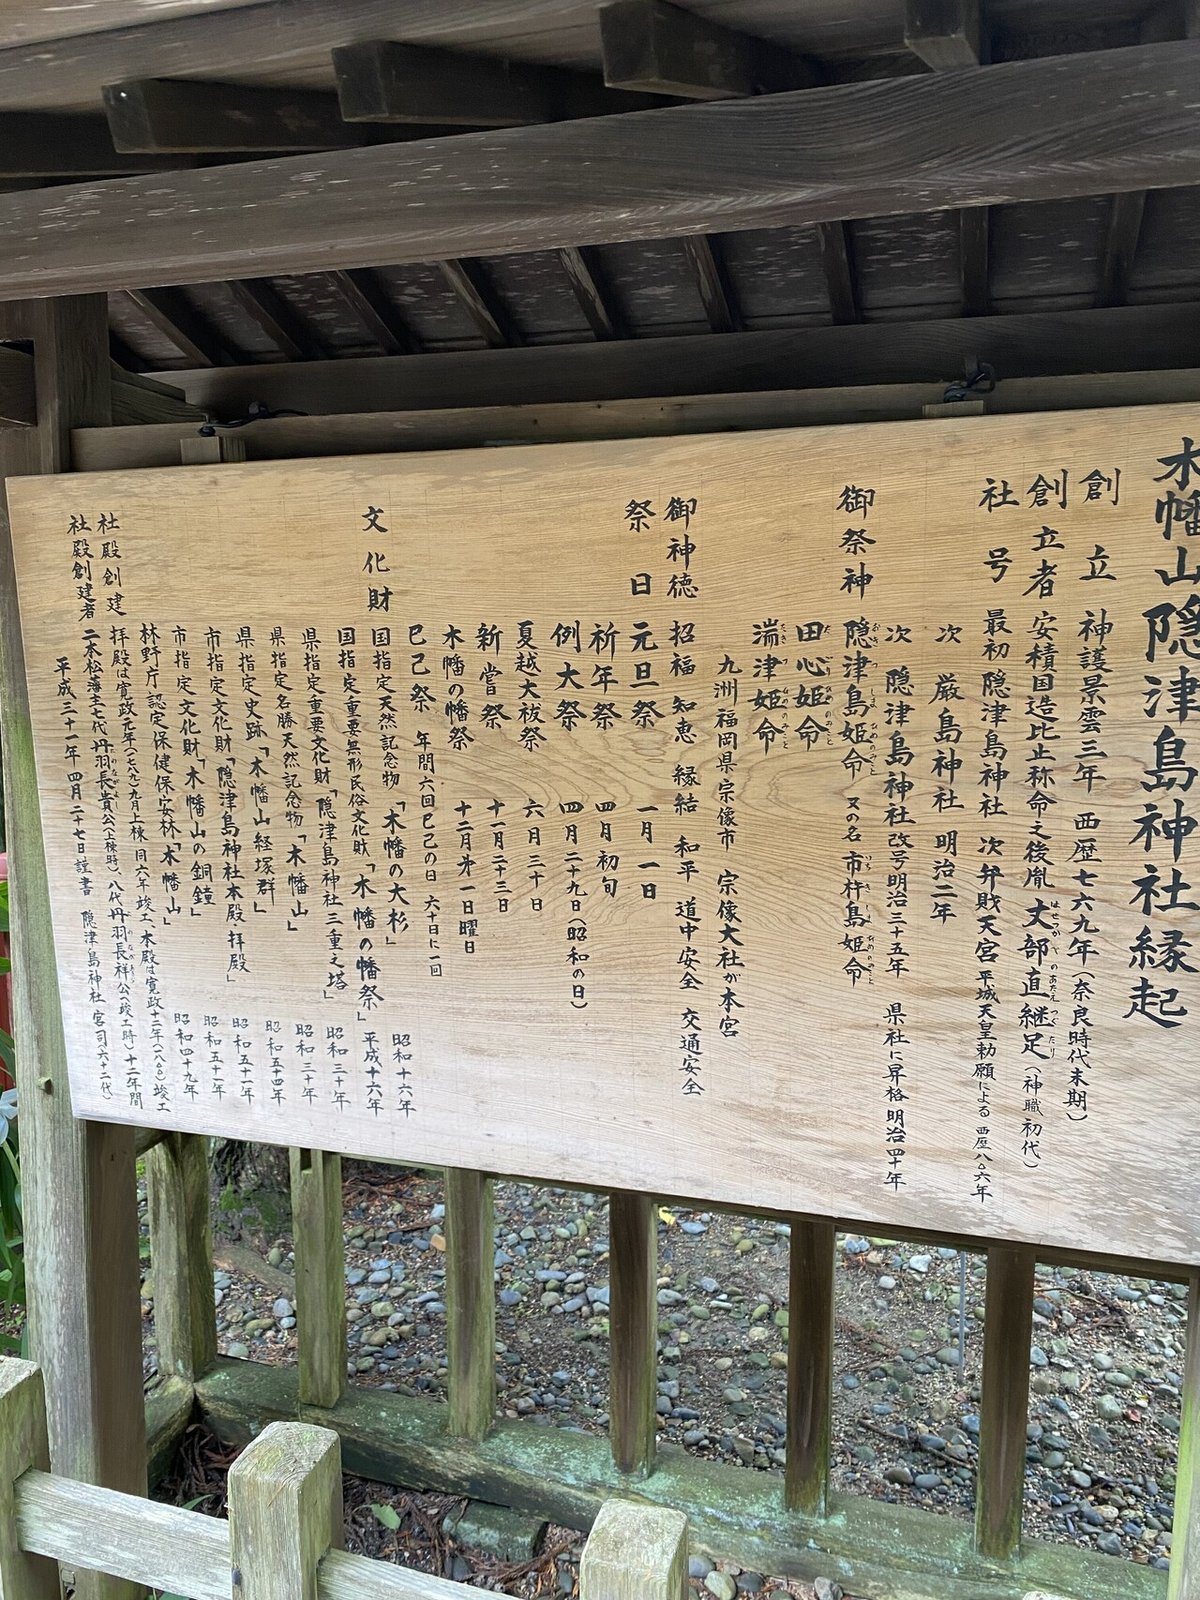 木幡山隠津島神社縁起
創立 神護景雲三年 西歴七六九年(奈良時代末期)
創立者 安積国造比止祢命之後胤 丈部直継足(神職初代)
社号 最初 隠津島神社 次弁財天宮 平城天皇勅願による 西歴八〇六年
次 厳島神社 明治二年
次 隠津島神社 改号明治三十五年 県社に昇格明治四十年
御祭神 隠津島姫命 又の名 市杵島姫命
田心姫命
湍津姫命
九洲福岡県宗像市 宗像大社が本宮
御神徳 招福 知恵 縁結 和平 道中安全 交通安全
祭日 元旦祭 一月一日
祈年祭 四月初旬
例大祭 四月二十九日(昭和の日)
夏越大祓祭 六月三十日
新嘗祭 十一月二十三日
木幡の幡祭 十二月第一日曜日
巳己祭 年間六回己巳の日 六十日に一回
文化財 国指定天然記念物「木幡の大杉」 昭和十六年
国指定重要無形民俗文化財「木幡の幡祭」 平成十六年
県指定重要文化財「隠津島神社三重之塔」 昭和三十年
県指定名勝天然記念物「木幡山」 昭和三十年
県指定史跡「木幡山経塚群」 昭和五十四年
市指定文化財「隠津島神社本殿・拝殿」 昭和五十一年
市指定文化財「木幡山の銅鐘」 昭和五十一年
林野庁認定保健保安林「木幡山」 昭和四十九年
社殿創建 拝殿は寛政元年(一七八九)九月上棟 同六年竣工 本殿は寛政十二年(一八〇〇)竣工
社殿創建者 二本松藩主七代丹羽長貴公(上棟時)、八代丹羽長祥公(竣工時)十二年間
平成三十一年四月二十七日謹書 隠津島神社 宮司(六十二代)